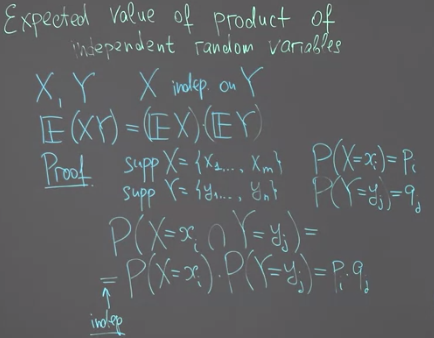 Expected value of product of
independent random variables
X, Y X indep. on Y
𝔼(XY) = (𝔼X)(𝔼Y)
Proof. supp X = {x₁..., xₘ} P(X=xᵢ) = pᵢ
supp Y = {y₁..., yₙ} P(Y=yⱼ) = qⱼ
P(X=xᵢ ∩ Y=yⱼ) =
= P(X=xᵢ) · P(Y=yⱼ) = pᵢ · qⱼ
↑
indep